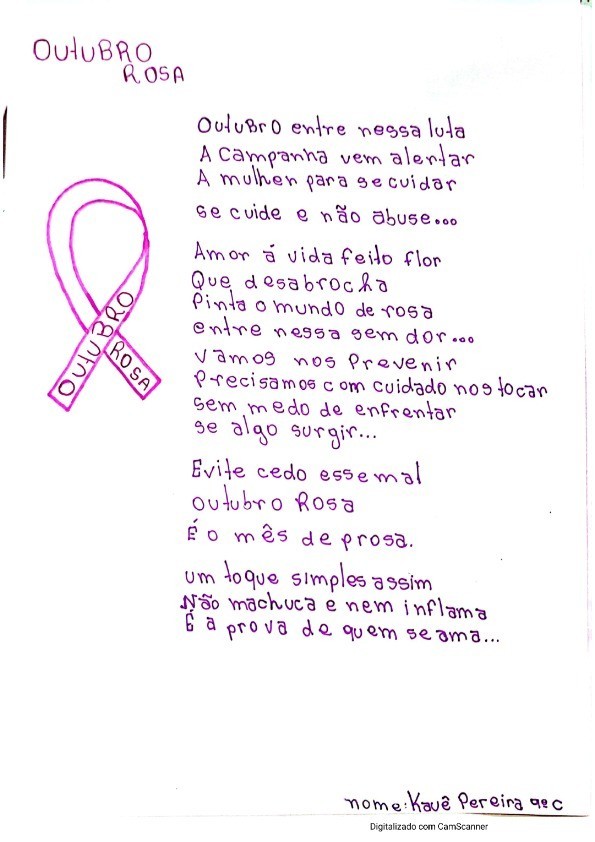 OUtUBRO
ROSA
OUtUBRO entre nessa luta
A Campanha vem alertar
A mulher para se cuidar
se cuide e não abuse...
Amor á vida feito flor
Que desabrocha
Pinta o mundo de rosa
entre nessa sem dor...
Vamos nos Prevenir
Precisamos com cuidado nos tocar
sem medo de enfrentar
se algo surgir...
OUTUBRO
ROSA
Evite cedo esse mal
Outubro Rosa
É o mês de prosa.
um toque simples assim
Não machuca e nem inflama
É a prova de quem se ama...
nome: Kauê Pereira 9º C
Digitalizado com CamScanner